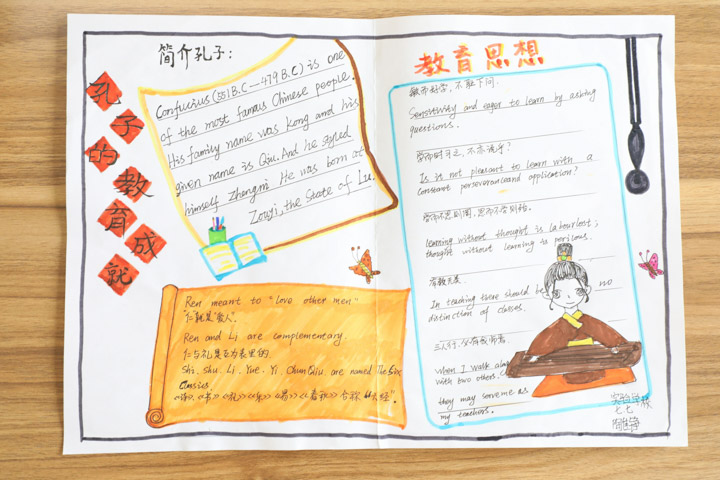 孔子的教育成就
简介孔子:
Confucius (551 B.C—479 B.C) is one
of the most famous Chinese people.
His family name was Kong and his
given name is Qiu. And he styled
himself Zhongni. He was born at
Zouyi, the State of Lu.
Ren meant to "love other men"
"仁"就是"爱人".
Ren and Li are complementary.
仁与礼是互为表里的
Shi. Shu. Li. Yue. Yi. ChunQiu. are named The Six
Classics
《诗》《书》《礼》《乐》《易》《春秋》合称"六经".
教育思想
敏而好学,不耻下问.
Sensitivity and eager to learn by asking
questions.
学而时习之,不亦说乎?
Is it not pleasant to learn with a
constant perseverance and application?
学而不思则罔,思而不学则殆.
learning without thought is labour lost;
thought without learning is perilous.
有教无类
In teaching there should be no
distinction of classes.
三人行,必有我师焉
When I walk along
with two others.
they may serve me as
my teachers.
实验学校
七七